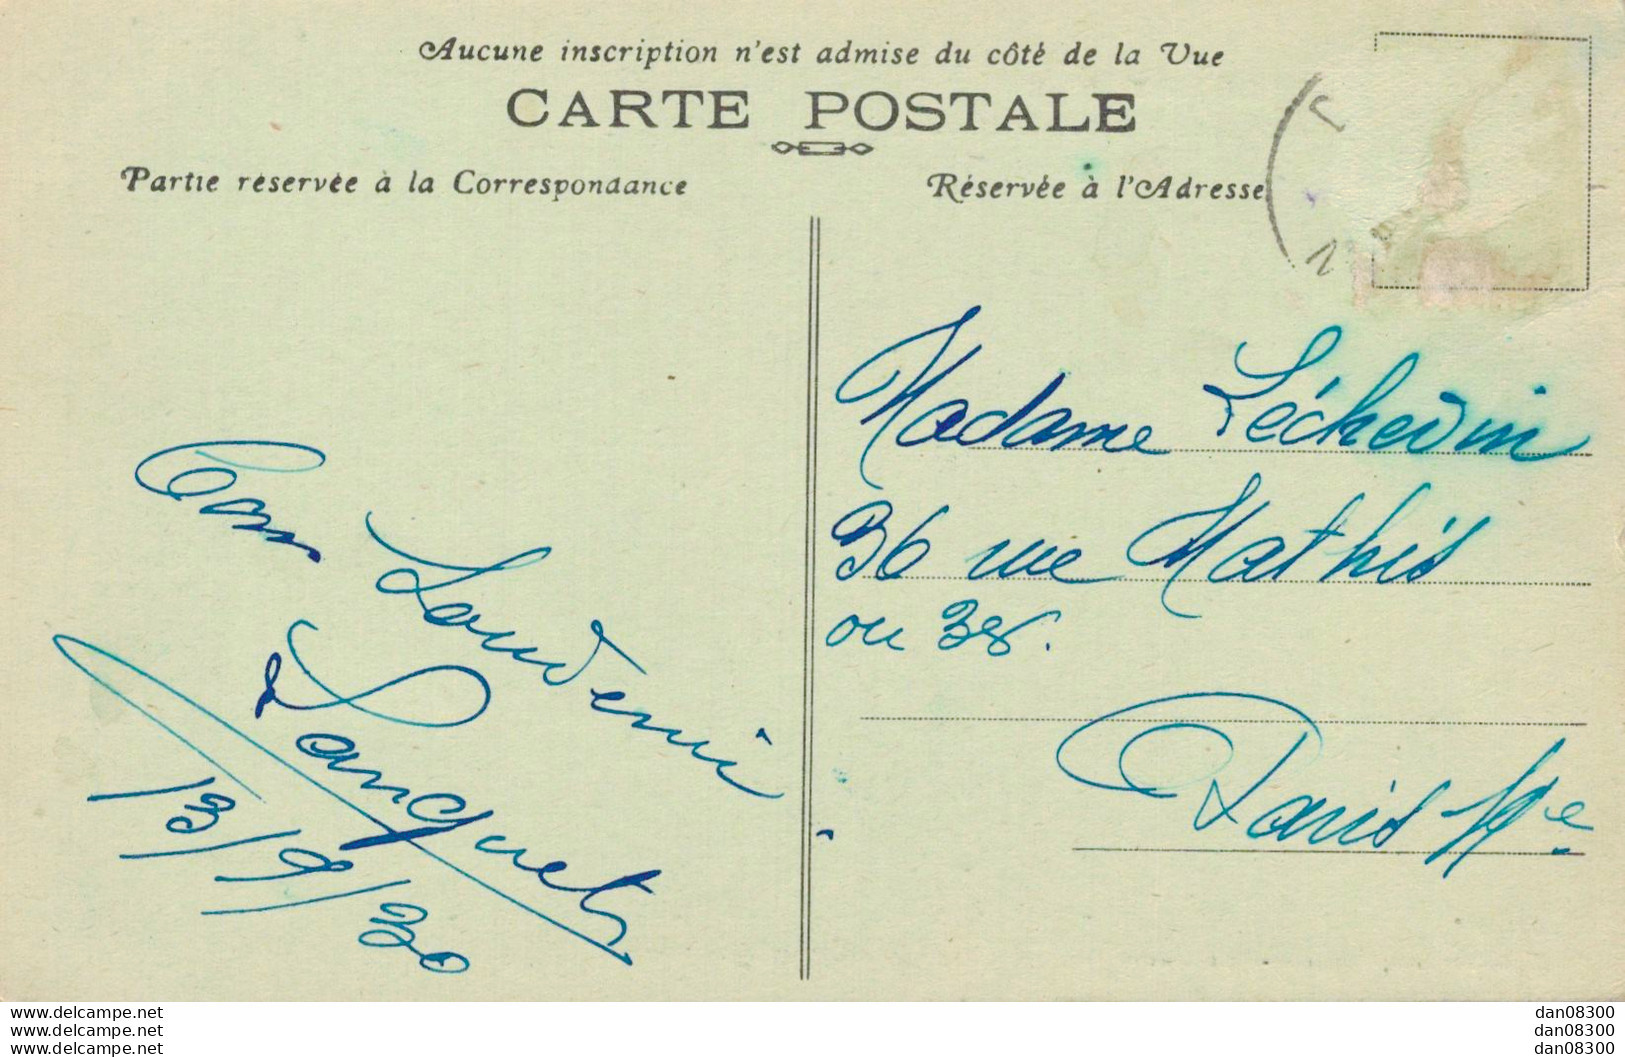 Aucune inscription n'est admise du côté de la Vue
CARTE POSTALE
Partie réservée à la Correspondance
Réservée à l'Adresse
Bon Souvenir
Languet
13/9/30
Madame Léchevin
36 rue Mathis
ou 38.
Paris
www.delcampe.net
www.delcampe.net
www.delcampe.net
dan08300
dan08300
dan08300